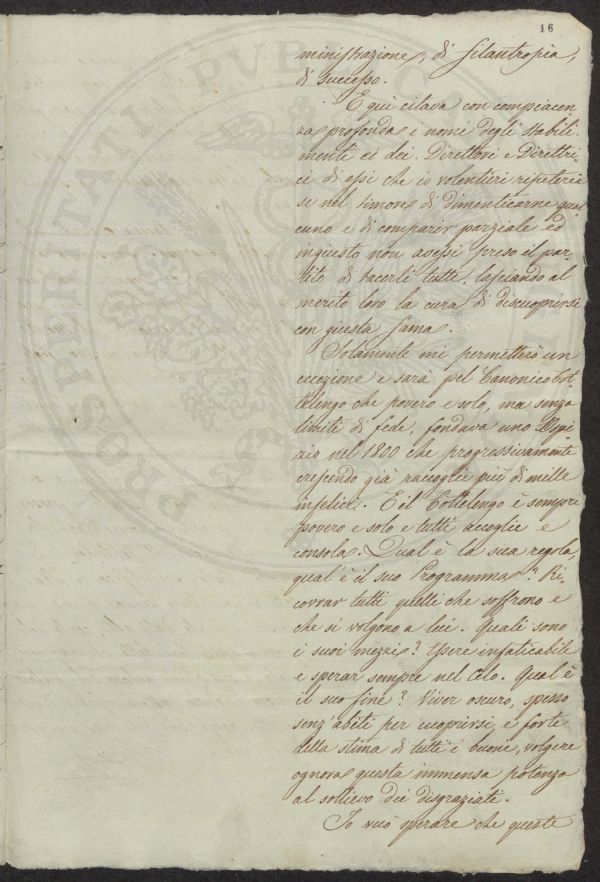 16
ministrazione, di filantropia,
di successo.
E quì citava con compiacen
za profonda i nomi degli stabili
menti et dei Direttori e Direttri
ci di essi che io volentieri ripeterei
se nel timore di dimenticarne qual
cuno e di comparir parziale ed
ingiusto non avessi preso il par
tito di tacerli tutti, lasciando al
merito loro la cura di discuoprirsi
con giusta fama.
Solamente mi permetterò un
eccezione e sarà pel Canonico Cot
telengo che povero e solo, ma senza
limite di fede, fondava uno Ospi
zio nel 1800 che progressivamente
crescendo già raccoglie più di mille
infelici. E il Cottelengo è sempre
povero e solo e tutti accoglie e
consola. Qual è la sua regola,
qual'è il suo Programma? Ri
covrar tutti quelli che soffrono e
che si volgono a lui. Quali sono
i suoi mezzi? Essere infaticabile
e sperar sempre nel Cielo. Qual è
il suo fine? Viver oscuro, spesso
senz'abiti per cuoprirsi, e forte
della stima di tutti i buoni, volgere
ognora questa immensa potenza
al sollievo dei disgraziati.
Io vuò sperare che queste
PROSPERITATI PUBLICAE